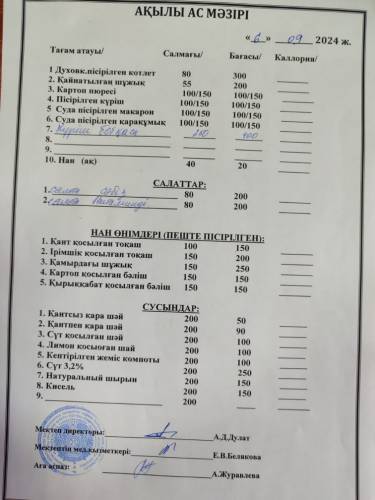 АҚЫЛЫ АС МӘЗІРІ
« 6 » 09 2024 ж.
Тағам атауы/ Салмағы/ Бағасы/ Каллория/
1 Духовк.пісірілген котлет 80 300
2. Қайнатылған шұжық 55 200
3. Картоп пюресі 100/150 100/150
4. Пісірілген күріш 100/150 100/150
5 Суда пісірілген макарон 100/150 100/150
6. Суда пісірілген қарақұмық 100/150 100/150
7. Күріш ботқасы 200
8.
9.
10. Нан (ақ) 40 20
САЛАТТАР:
1. салат 80 200
2. салат 80 200
НАН ӨНІМДЕРІ (ПЕШТЕ ПІСІРІЛГЕН):
1. Қант қосылған тоқаш 100 150
2. Ірімшік қосылған тоқаш 150 200
3. Қамырдағы шұжық 150 250
4. Картоп қосылған бәліш 150 150
5. Қырыққабат қосылған бәліш 150 150
СУСЫНДАР:
1. Қантсыз қара шәй 200 50
2. Қантпен қара шәй 200 90
3. Сүт қосылған шәй 200 100
4. Лимон қосыоған шай 200 100
5. Кептірілген жеміс компоты 200 100
6. Сүт 3,2% 200 250
7. Натуральный шырын 200 150
8. Кисель 200 150
9. 200
Мектеп директоры: А.Д.Дулат
Мектептің мед.қызметкері: Е.В.Белякова
Аға аспаз: А.Журавлева